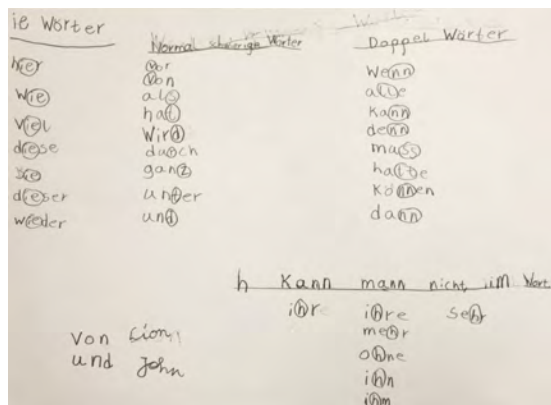 ie Wörter
hier
Wie
Viel
diese
sie
dieser
wieder
Normal schwierige Wörter
Vor
Von
als
hat
Wird
durch
ganz
unter
und
Doppel Wörter
Wenn
alle
Kann
denn
muss
hatte
Können
dann
h Kann mann nicht im Wort
ihre ihre sehr
mehr
ohne
ihn
ihm
von Lion
und John